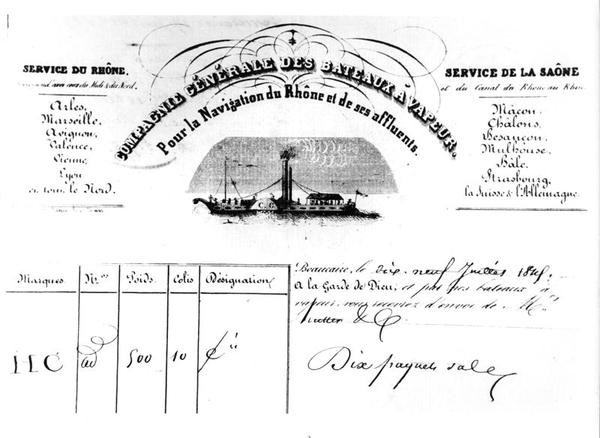 COMPAGNIE GÉNÉRALE DES BATEAUX À VAPEUR.
Pour la Navigation du Rhône et de ses affluents.
SERVICE DU RHÔNE.
du Midi & du Nord.
Arles,
Marseille,
Avignon,
Valence,
Vienne,
Lyon
et tout le Nord.
SERVICE DE LA SAÔNE
et du Canal du Rhône au Rhin.
Mâcon,
Châlons,
Besançon,
Mulhouse,
Bâle,
Strasbourg,
la Suisse & l'Allemagne.
C. G.
Beaucaire, le dix neuf Juillet
A la Garde de Dieu, et par nos bateaux à
vapeur, vous recevrez d'envoi de
& C
Marques Nos Poids Colis Désignation
500 10
Dix paquets